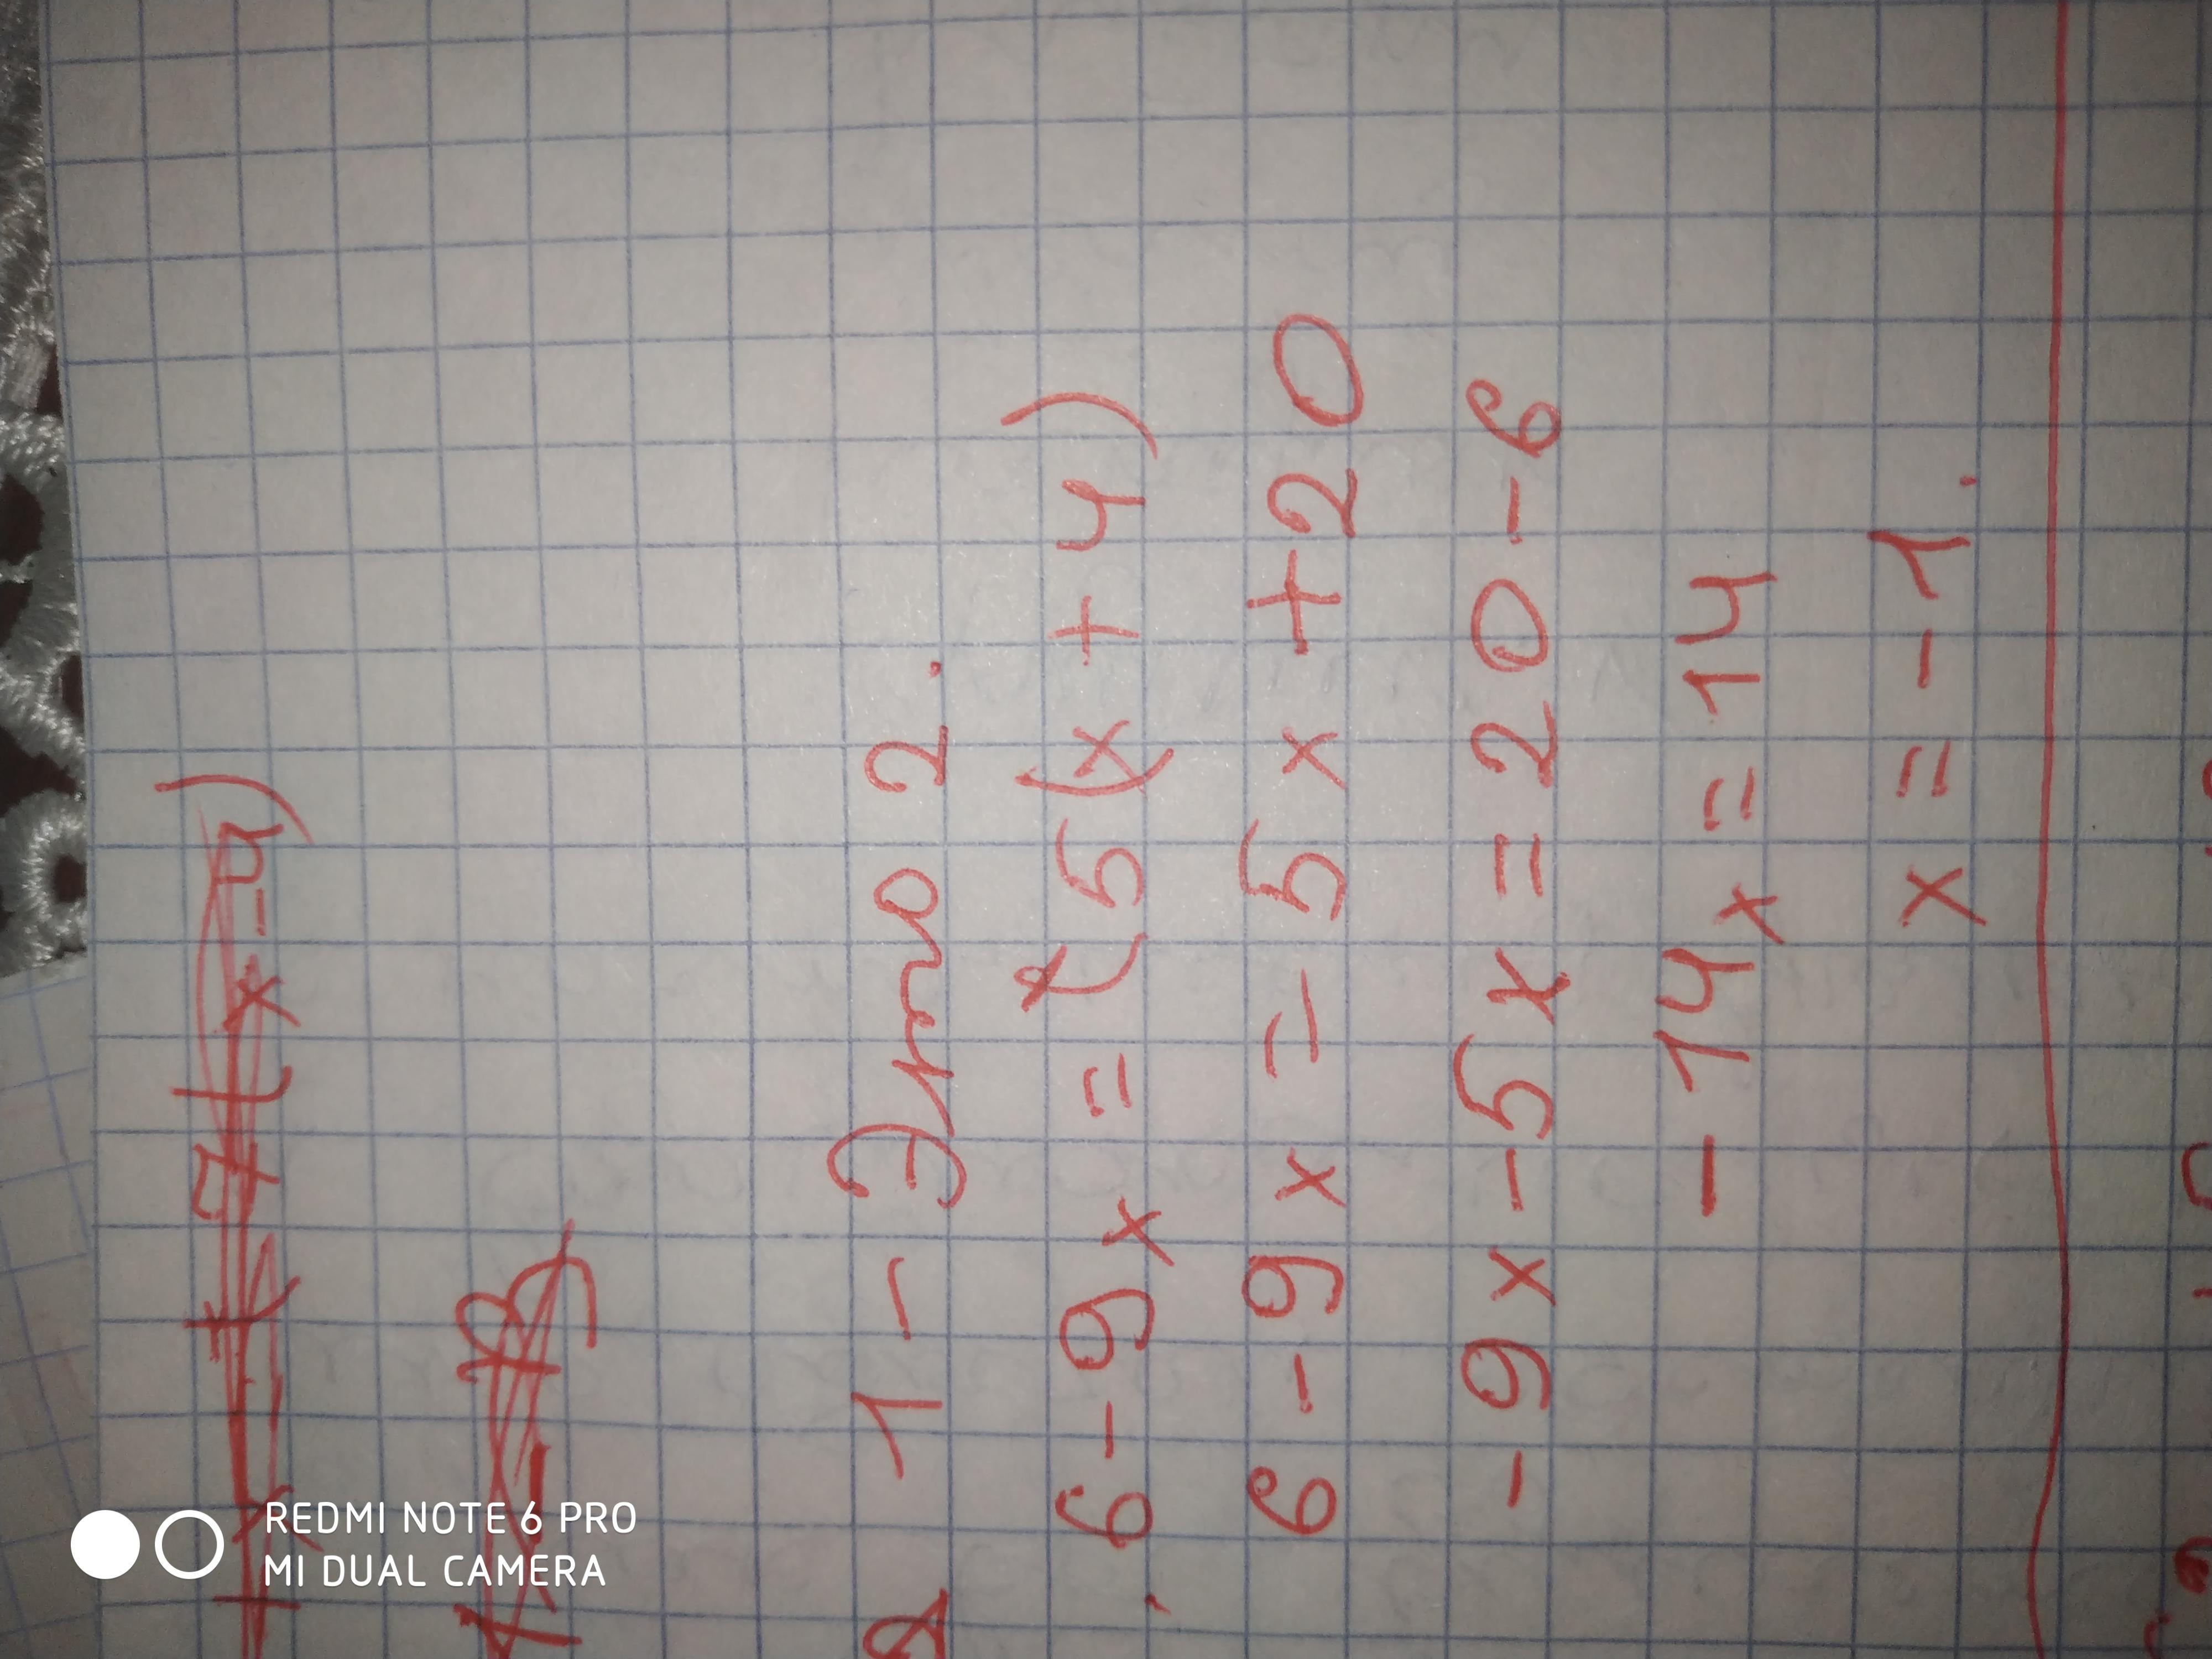 1 - Это 2.
6-9x = (5(x+4)
6-9x = 5x+20
-9x-5x=20-6
-14x=14
x=-1.
REDMI NOTE 6 PRO
MI DUAL CAMERA